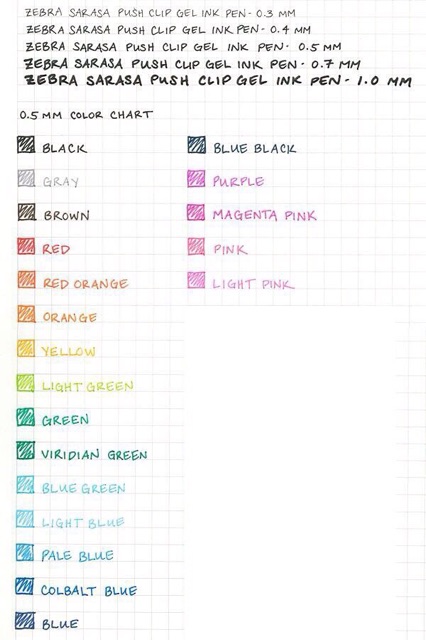 ZEBRA SARASA PUSH CLIP GEL INK PEN - 0.3 MM
ZEBRA SARASA PUSH CLIP GEL INK PEN - 0.4 MM
ZEBRA SARASA PUSH CLIP GEL INK PEN - 0.5 MM
ZEBRA SARASA PUSH CLIP GEL INK PEN - 0.7 MM
ZEBRA SARASA PUSH CLIP GEL INK PEN - 1.0 MM
0.5 MM COLOR CHART
BLACK
GRAY
BROWN
RED
RED ORANGE
ORANGE
YELLOW
LIGHT GREEN
GREEN
VIRIDIAN GREEN
BLUE GREEN
LIGHT BLUE
PALE BLUE
COLBALT BLUE
BLUE
BLUE BLACK
PURPLE
MAGENTA PINK
PINK
LIGHT PINK